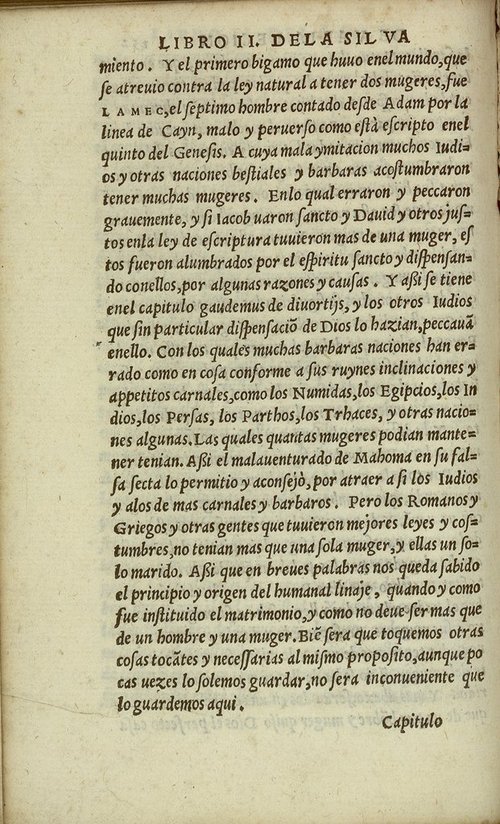 LIBRO II. DELA SILVA
miento. Y el primero bigamo que huuo enel mundo, que
se atreuio contra la ley natural a tener dos mugeres, fue
LAMEC, el septimo hombre contado desde Adam por la
linea de Cayn, malo y peruerso como està escripto enel
quinto del Genesis. A cuya mala ymitacion muchos Iudi=
os y otras naciones bestiales y barbaras acostumbraron
tener muchas mugeres. Enlo qual erraron y peccaron
grauemente, y si Iacob uaron sancto y Dauid y otros jus=
tos enla ley de escriptura tuuieron mas de una muger, es
tos fueron alumbrados por el espiritu sancto y dispensan=
do conellos, por algunas razones y causas. Y aßi se tiene
enel capitulo gaudemus de diuortijs, y los otros Iudios
que sin particular dispensaciõ de Dios lo hazian, peccauã
enello. Con los quales muchas barbaras naciones han er=
rado como en cosa conforme a sus ruynes inclinaciones y
appetitos carnales, como los Numidas, los Egipcios, los In
dios, los Persas, los Parthos, los Trhaces, y otras nacio=
nes algunas. Las quales quantas mugeres podian mante=
ner tenian. Aßi el malauenturado de Mahoma en su fal=
sa secta lo permitio y aconsejò, por atraer a si los Iudios
y alos de mas carnales y barbaros. Pero los Romanos y
Griegos y otras gentes que tuuieron mejores leyes y cos=
tumbres, no tenian mas que una sola muger, y ellas un so=
lo marido. Aßi que en breues palabras nos queda sabido
el principio y origen del humanal linaje, quando y como
fue instituido el matrimonio, y como no deue ser mas que
de un hombre y una muger. Biẽ sera que toquemos otras
cosas tocãtes y necessarias al mismo proposito, aunque po
cas uezes lo solemos guardar, no sera inconueniente que
lo guardemos aqui.
Capitulo